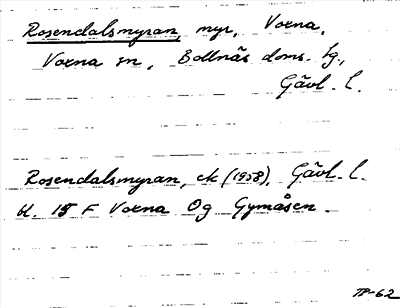 Rosendalsmyran, myr, Voxna,
Voxna sn, Bollnäs doms. lg.,
Gävl. l.
Rosendalsmyran, ek (1958), Gävl. l.
bl. 15 F Voxna Og Gymåsen.
TP-62